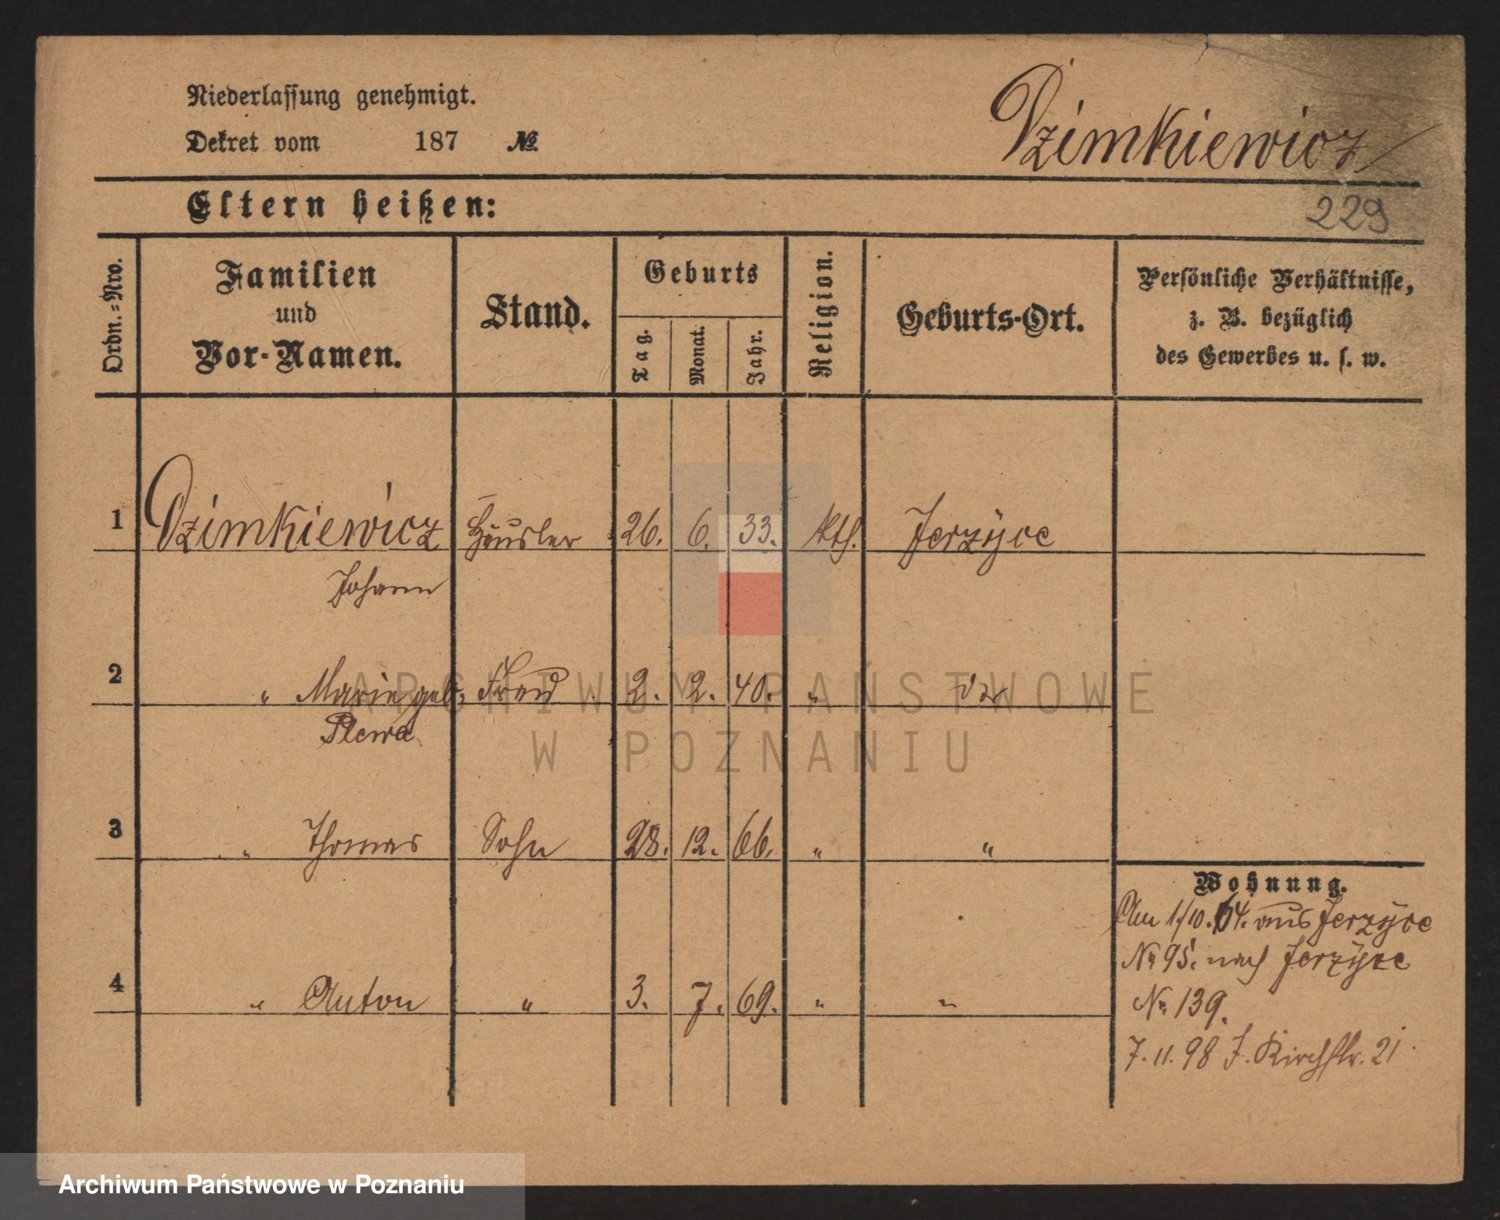 Niederlassung genehmigt.
Dekret vom 187 №
Dzimkiewicz
Eltern heißen:
229
Ordn.-Nro.
Familien
und
Vor-Namen.
Stand.
Geburts
Tag.
Monat.
Jahr.
Religion.
Geburts-Ort.
Persönliche Verhältnisse,
z. B. bezüglich
des Gewerbes u. s. w.
1 Dzimkiewicz Häusler 26. 6. 33. kth. Jerzyce
Johann
2 " Marie geb. Frau 2. 2. 40. "
Plewa
3 " Thomas Sohn 28. 12. 66. " "
4 " Anton " 3. 7. 69. " "
Wohnung.
Am 1/10. 64. aus Jerzyce
№ 95. nach Jerzyce
№ 139.
7. 11. 98 J. Kirchstr. 21
ARCHIWUM PAŃSTWOWE
W POZNANIU
Archiwum Państwowe w Poznaniu